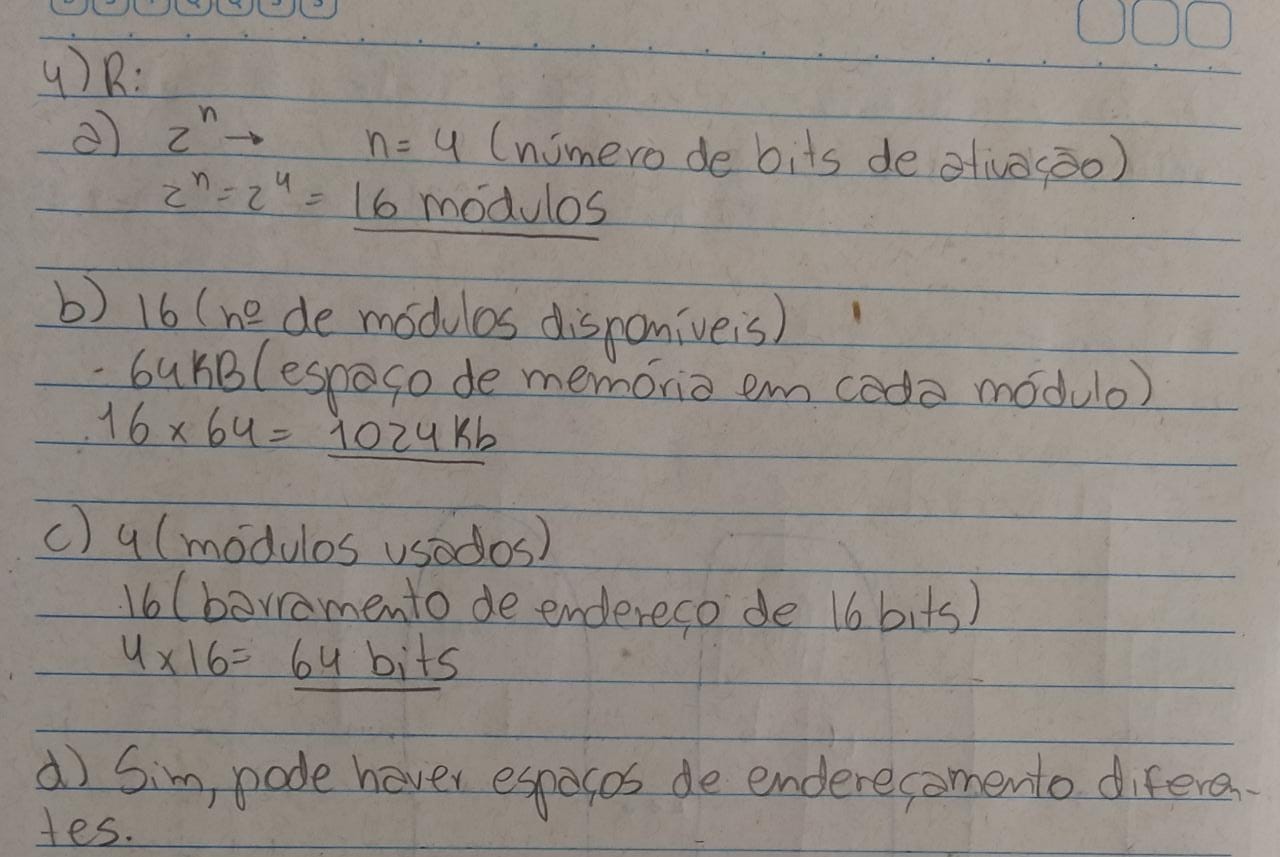 4) R:
a) 2ⁿ → n = 4 (número de bits de ativação)
2ⁿ = 2⁴ = 16 módulos
b) 16 (nº de módulos disponíveis)
- 64KB (espaço de memória em cada módulo)
16 x 64 = 1024 Kb
c) 4 (módulos usados)
16 (barramento de endereço de 16 bits)
4 x 16 = 64 bits
d) Sim, pode haver espaços de endereçamento diferen-
tes.